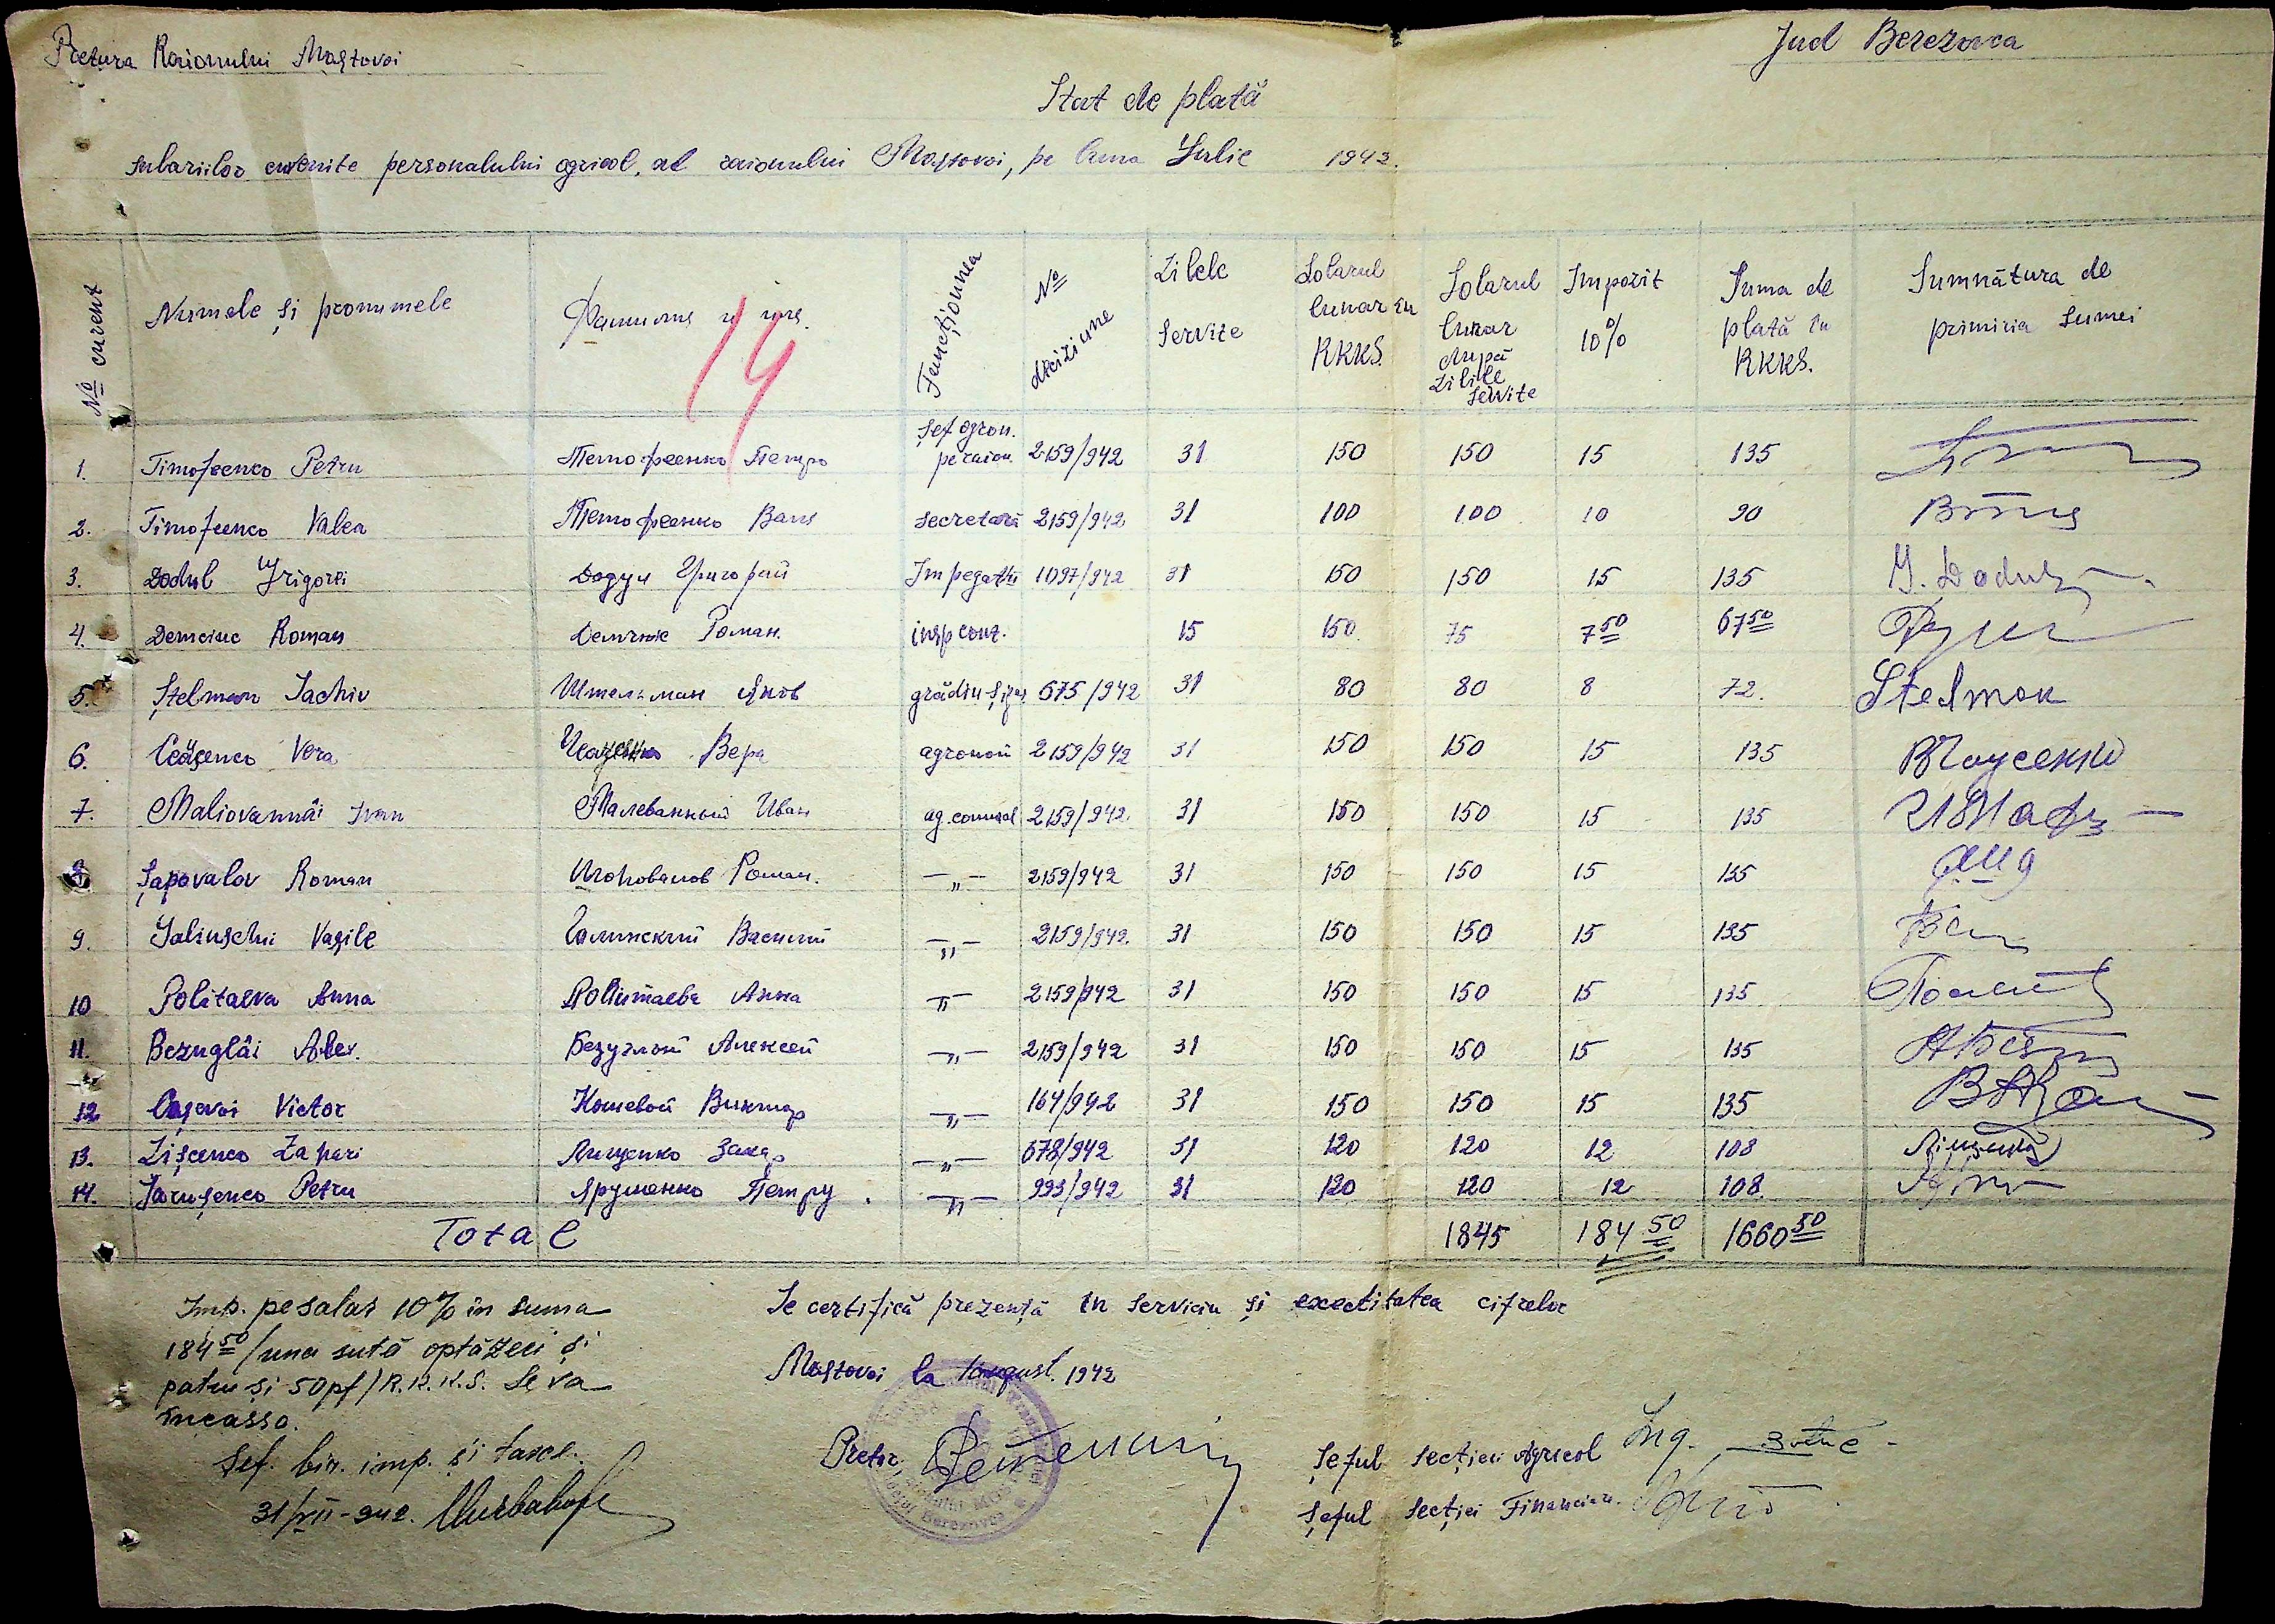 Pretura Raionului Mostovoi
Jud Berezovca
Stat de plată
salariilor cuvenite personalului agricol, al raionului Mostovoi, pe luna Iulie 1942.
No curent | Numele și pronumele | Фамилия и имя. | Funcțiunea | No deciziune | Zilele Servite | Solarul lunar în RKKS. | Solarul lunar după zilile servite | Impozit 10% | Suma de plată în RKKS. | Sumnătura de primiria sumei
14
1. Timofeenco Petru | Темофеенко Петро | Șef agron. pe raion | 2159/942 | 31 | 150 | 150 | 15 | 135
2. Timofeenco Valea | Темофеенко Валя | secretară | 2159/942 | 31 | 100 | 100 | 10 | 90
3. Dodul Grigori | Додул Григорий | 1097/942 | 31 | 150 | 150 | 15 | 135 | G. Dodul
4. Demciuc Roman | Демчюк Роман. | insp cont. | 15 | 150 | 75 | 7 50 | 67 50
5. Ștelman Iachiv | Штельман Яков | 675/942 | 31 | 80 | 80 | 8 | 72. | Stelman
6. Vera | Вера | agronom | 2159/942 | 31 | 150 | 150 | 15 | 135
7. Maliovannâi Ivan | Малеванный Иван | ag. comunal | 2159/942 | 31 | 150 | 150 | 15 | 135
8. Șapovalov Roman | Шаповалов Роман. | -„- | 2159/942 | 31 | 150 | 150 | 15 | 135
9. Galinschi Vasile | Галинский Василий | -„- | 2159/942. | 31 | 150 | 150 | 15 | 135
10 Politaeva Anna | Политаева Анна | -„- | 2159/942 | 31 | 150 | 150 | 15 | 135
11. Bezuglâi Alex. | Безуглый Алексей | -„- | 2159/942 | 31 | 150 | 150 | 15 | 135
12 Coșevoi Victor | Кошевой Виктор | -„- | 164/942 | 31 | 150 | 150 | 15 | 135
13. Lișcenco Zahari | Лищенко Захар | -„- | 678/942 | 31 | 120 | 120 | 12 | 108
14. Iarușenco Petru | Ярушенко Петру | -„- | 993/942 | 31 | 120 | 120 | 12 | 108
Total | 1845 | 184 50 | 1660 50
Imp. pe salar 10% în suma
184 50 /una sută optăzeci și
patru și 50 pf/ R.K.K.S. se va
incassa.
Șef. bir. imp. și taxe.
31/VII-942.
Se certifică prezența în serviciu și exactitatea cifrelor
Mostovoi la 1 august. 1942
Pretor,
Șeful secției Agricol Ing.
Șeful secției Financiar.